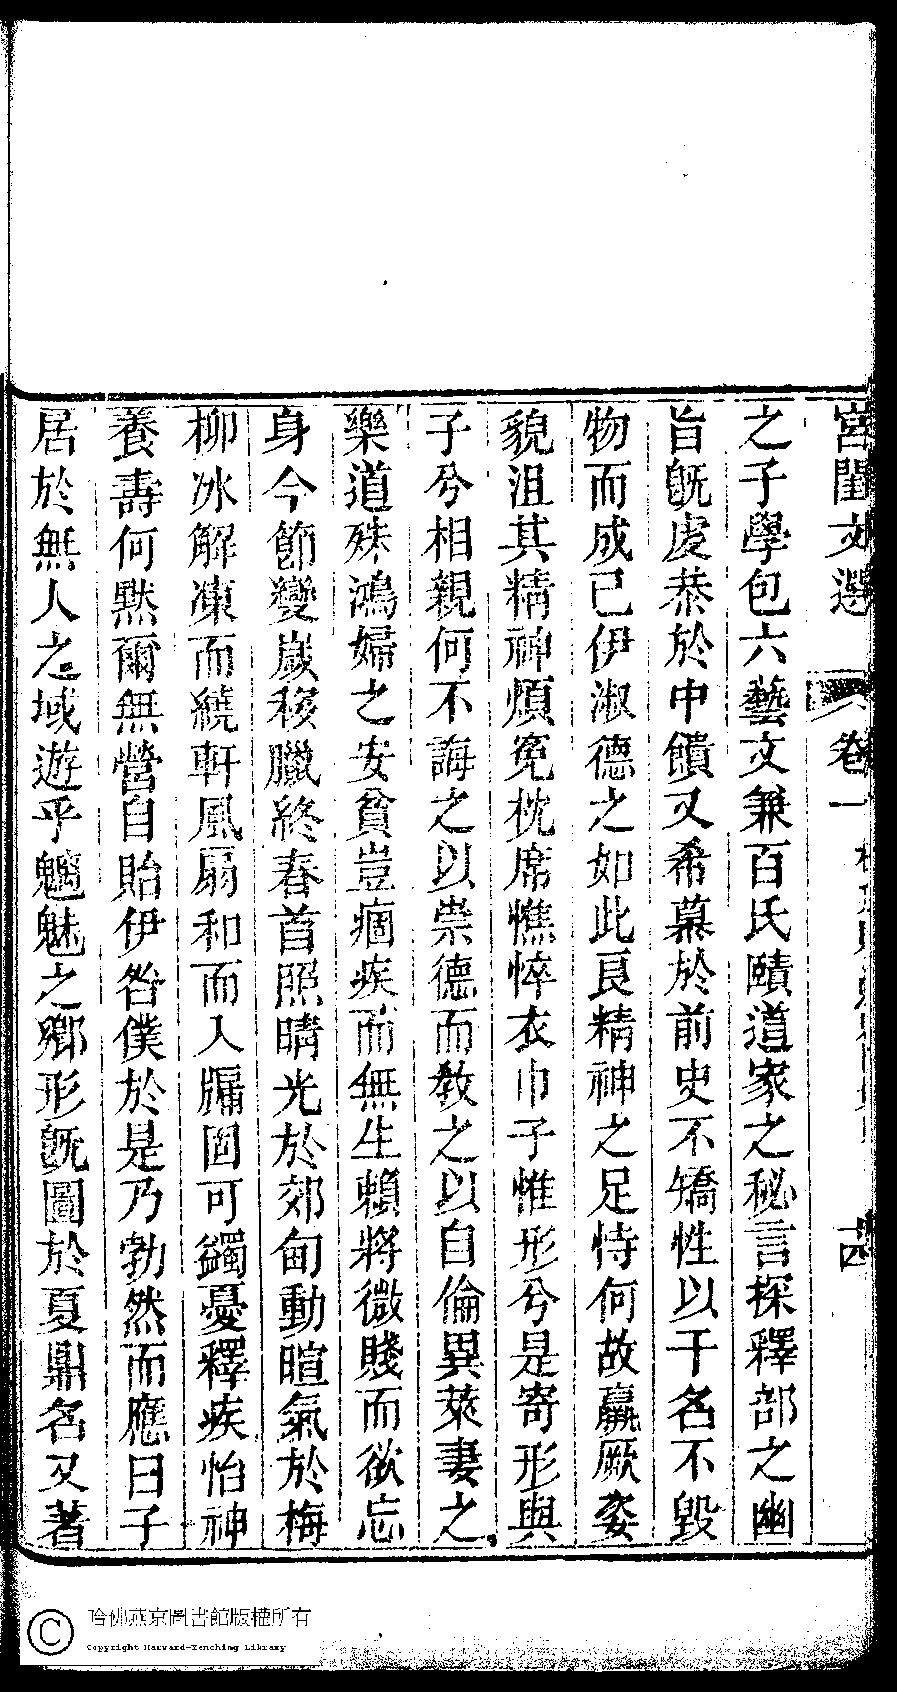 宮閨文選 卷一 十四
之子學包六藝文兼百氏賾道家之秘言探釋部之幽
旨旣虔恭於中饋又希慕於前史不矯性以干名不毀
物而成已伊淑德之如此良精神之足恃何故羸厥姿
貌沮其精神煩冤枕席憔悴衣巾子惟形兮是寄形與
子兮相親何不誨之以崇德而教之以自倫異萊妻之
樂道殊鴻婦之安貧豈痼疾而無生賴將微賤而欲忘
身今節變歲移臘終春首照晴光於郊甸動暄氣於梅
柳氷解凍而繞軒風扇和而入牖固可蠲憂釋疾怡神
養壽何默爾無營自貽伊咎僕於是乃勃然而應曰子
居於無人之域遊乎魑魅之鄉形旣圖於夏鼎名又著
哈佛燕京圖書館版權所有
Copyright Harvard-Yenching Library